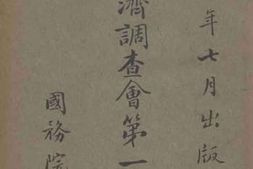 年七月出版
濟調查會第一
國務院